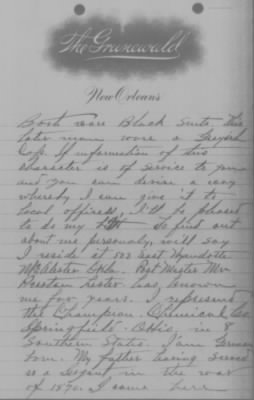 The Grunewald
New Orleans
Both wore Black Suits. The
later man wore a Greyish
Cap. If information of this
character is of service to you
and you can devise a way
whereby I can give it to
local officers, I'll be pleased
to do my Bit. To find out
about me personally, will say
I reside at 503 East Wyandotte
McAlester Okla. Post Master Mr
Lester has known
me for years. I represent
the Champion Chemical Co.
Springfield Ohio, in 8
Southern States. I am German
born. My father having served
as a Sergant in the war
of 1870. I came here